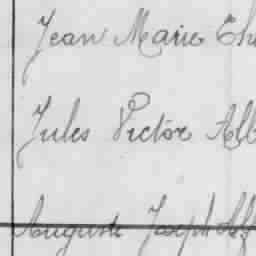 Jean Marie
Jules Victor Alb
Auguste Joseph Alf